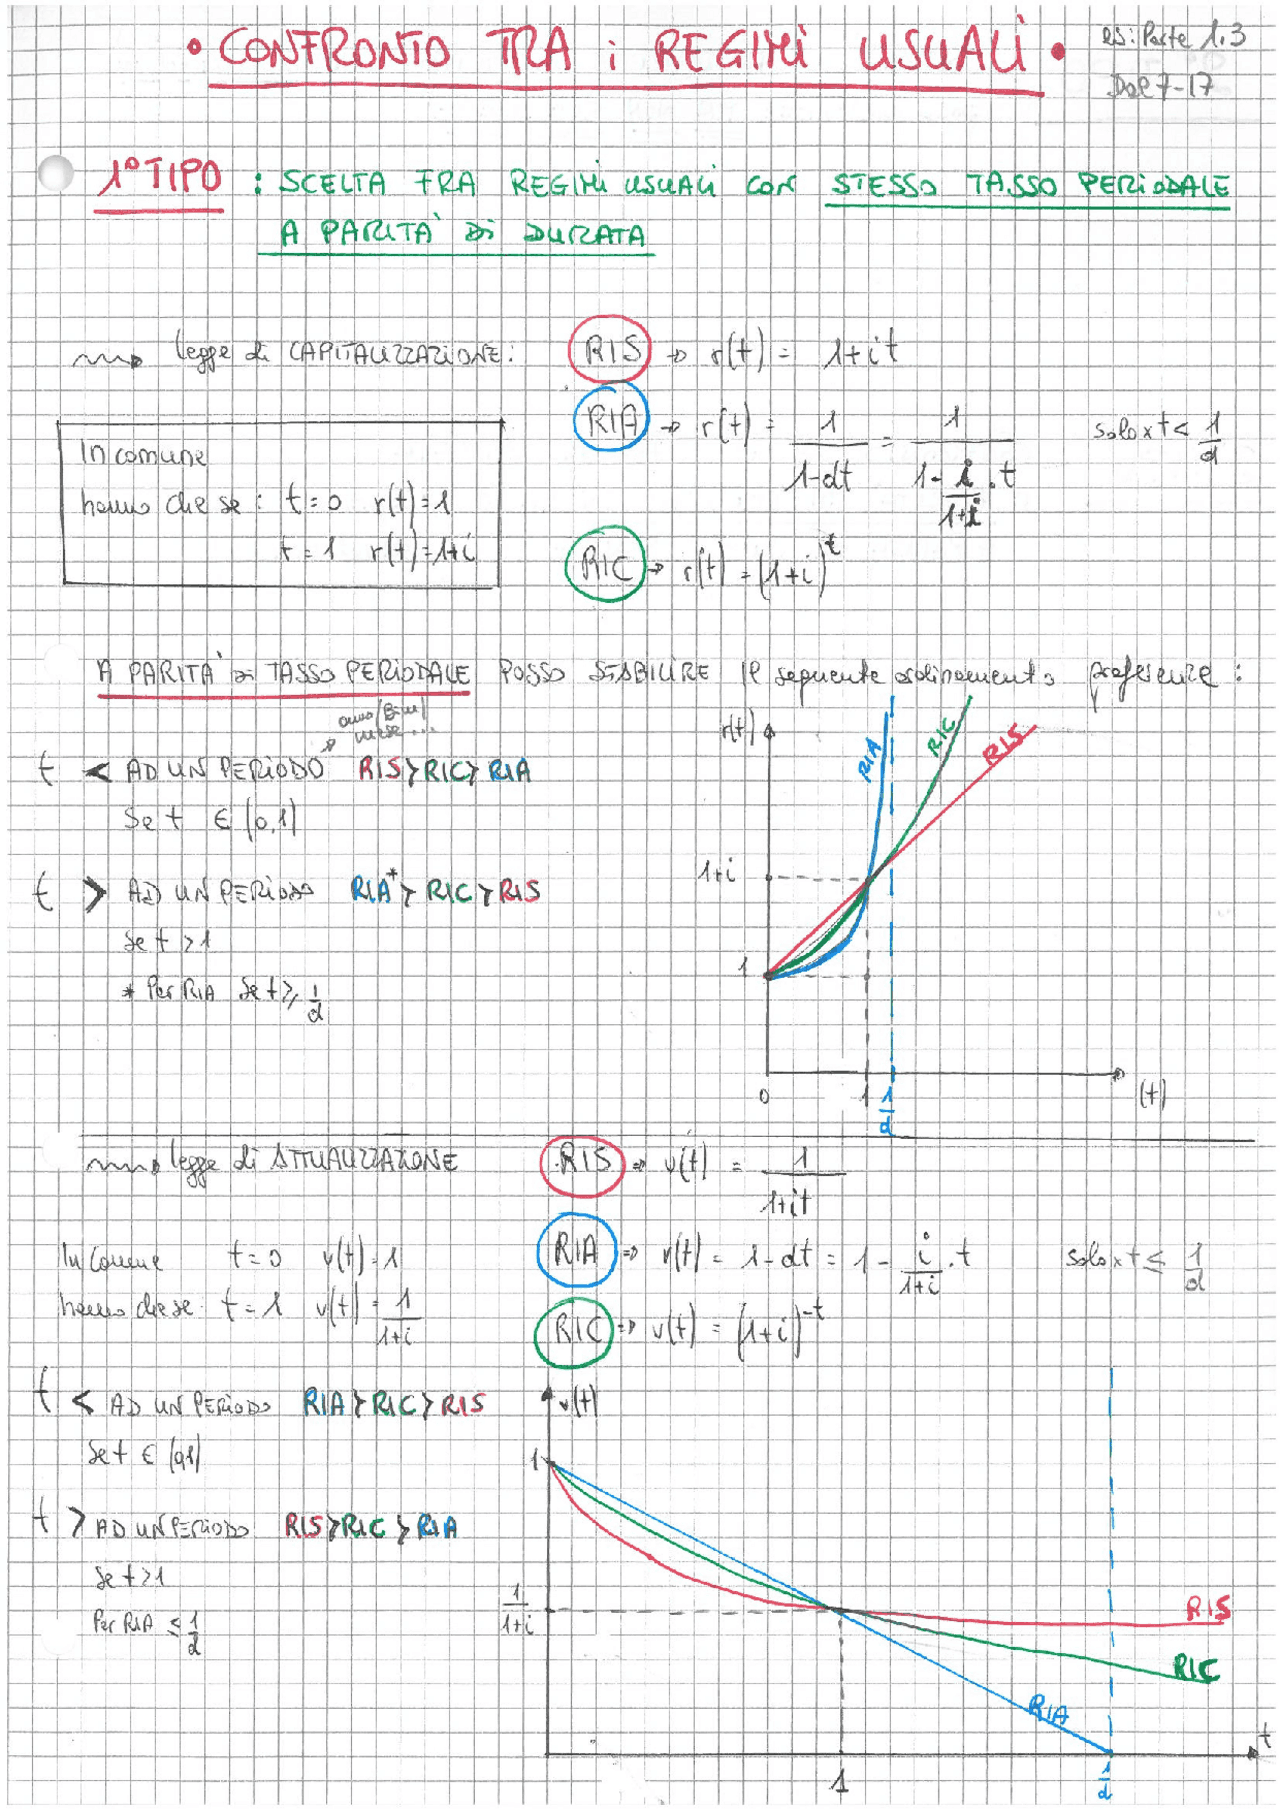 • CONFRONTO TRA i REGIMi USUALi •
RS: Parte 1.3
Da 7-17
1° TIPO : SCELTA FRA REGIMi USUALi CON STESSO TASSO PERIODALE
A PARITA' Di DURATA
legge di CAPITALIZZAZIONE: RIS → r(t) = 1+it
RIA → r(t) = 1/(1-dt) = 1/(1 - i/(1+i) · t) solo x t < 1/d
In comune
hanno che se : t=0 r(t)=1
t=1 r(t)=1+i
RIC → r(t) = (1+i)^t
A PARITA' Di TASSO PERIODALE POSSO STABILIRE il seguente ordinamento preferenze :
t < AD UN PERIODO RIS≻RIC≻RIA
Se t ∈ (0,1)
t > AD UN PERIODO RIA*≻RIC≻RIS
Se t >1
* Per RIA Se t ≥ 1/d
r(t)
RIA
RIC
RIS
1+i
1
0
1
1/d
(t)
legge di ATTUALIZZAZIONE RIS → v(t) = 1/(1+it)
In Comune t=0 v(t)=1
hanno che se t=1 v(t) = 1/(1+i)
RIA → v(t) = 1-dt = 1 - i/(1+i) · t solo x t ≤ 1/d
RIC → v(t) = (1+i)^-t
t < AD UN PERIODO RIA≻RIC≻RIS
Se t ∈ (0,1)
t > AD UN PERIODO RIS≻RIC≻RIA
Se t>1
Per RIA ≤ 1/d
v(t)
1
1/(1+i)
RIS
RIC
RIA
1
1/d
t